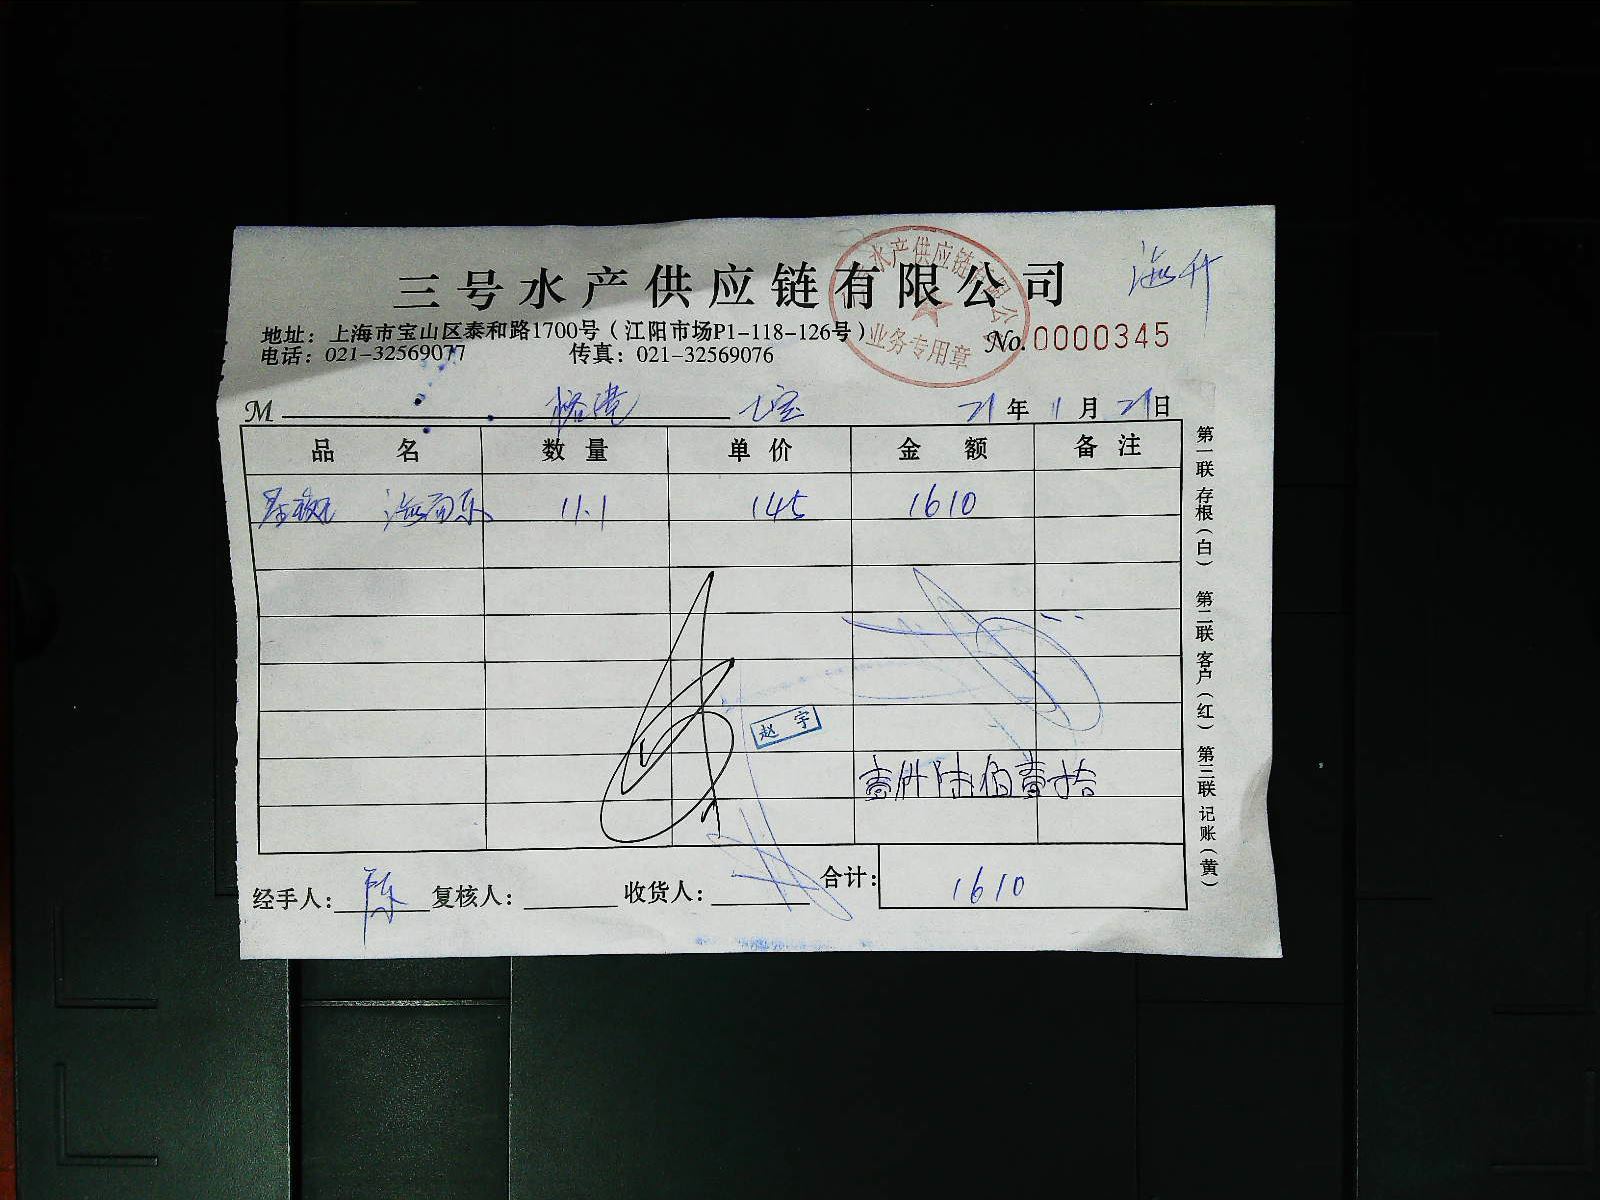 三号水产供应链有限公司
海升
水产供应链有限公
业务专用章
地址：上海市宝山区泰和路1700号（江阳市场P1-118-126号）
No. 0000345
电话：021-32569077 传真：021-32569076
M 裕莲 七宝 21年11月21日
品名 数量 单价 金额 备注
11.1 145 1610
赵宇
壹仟陆佰壹拾
经手人：陈 复核人： 收货人： 合计：1610
第一联 存根（白） 第二联 客户（红） 第三联 记账（黄）